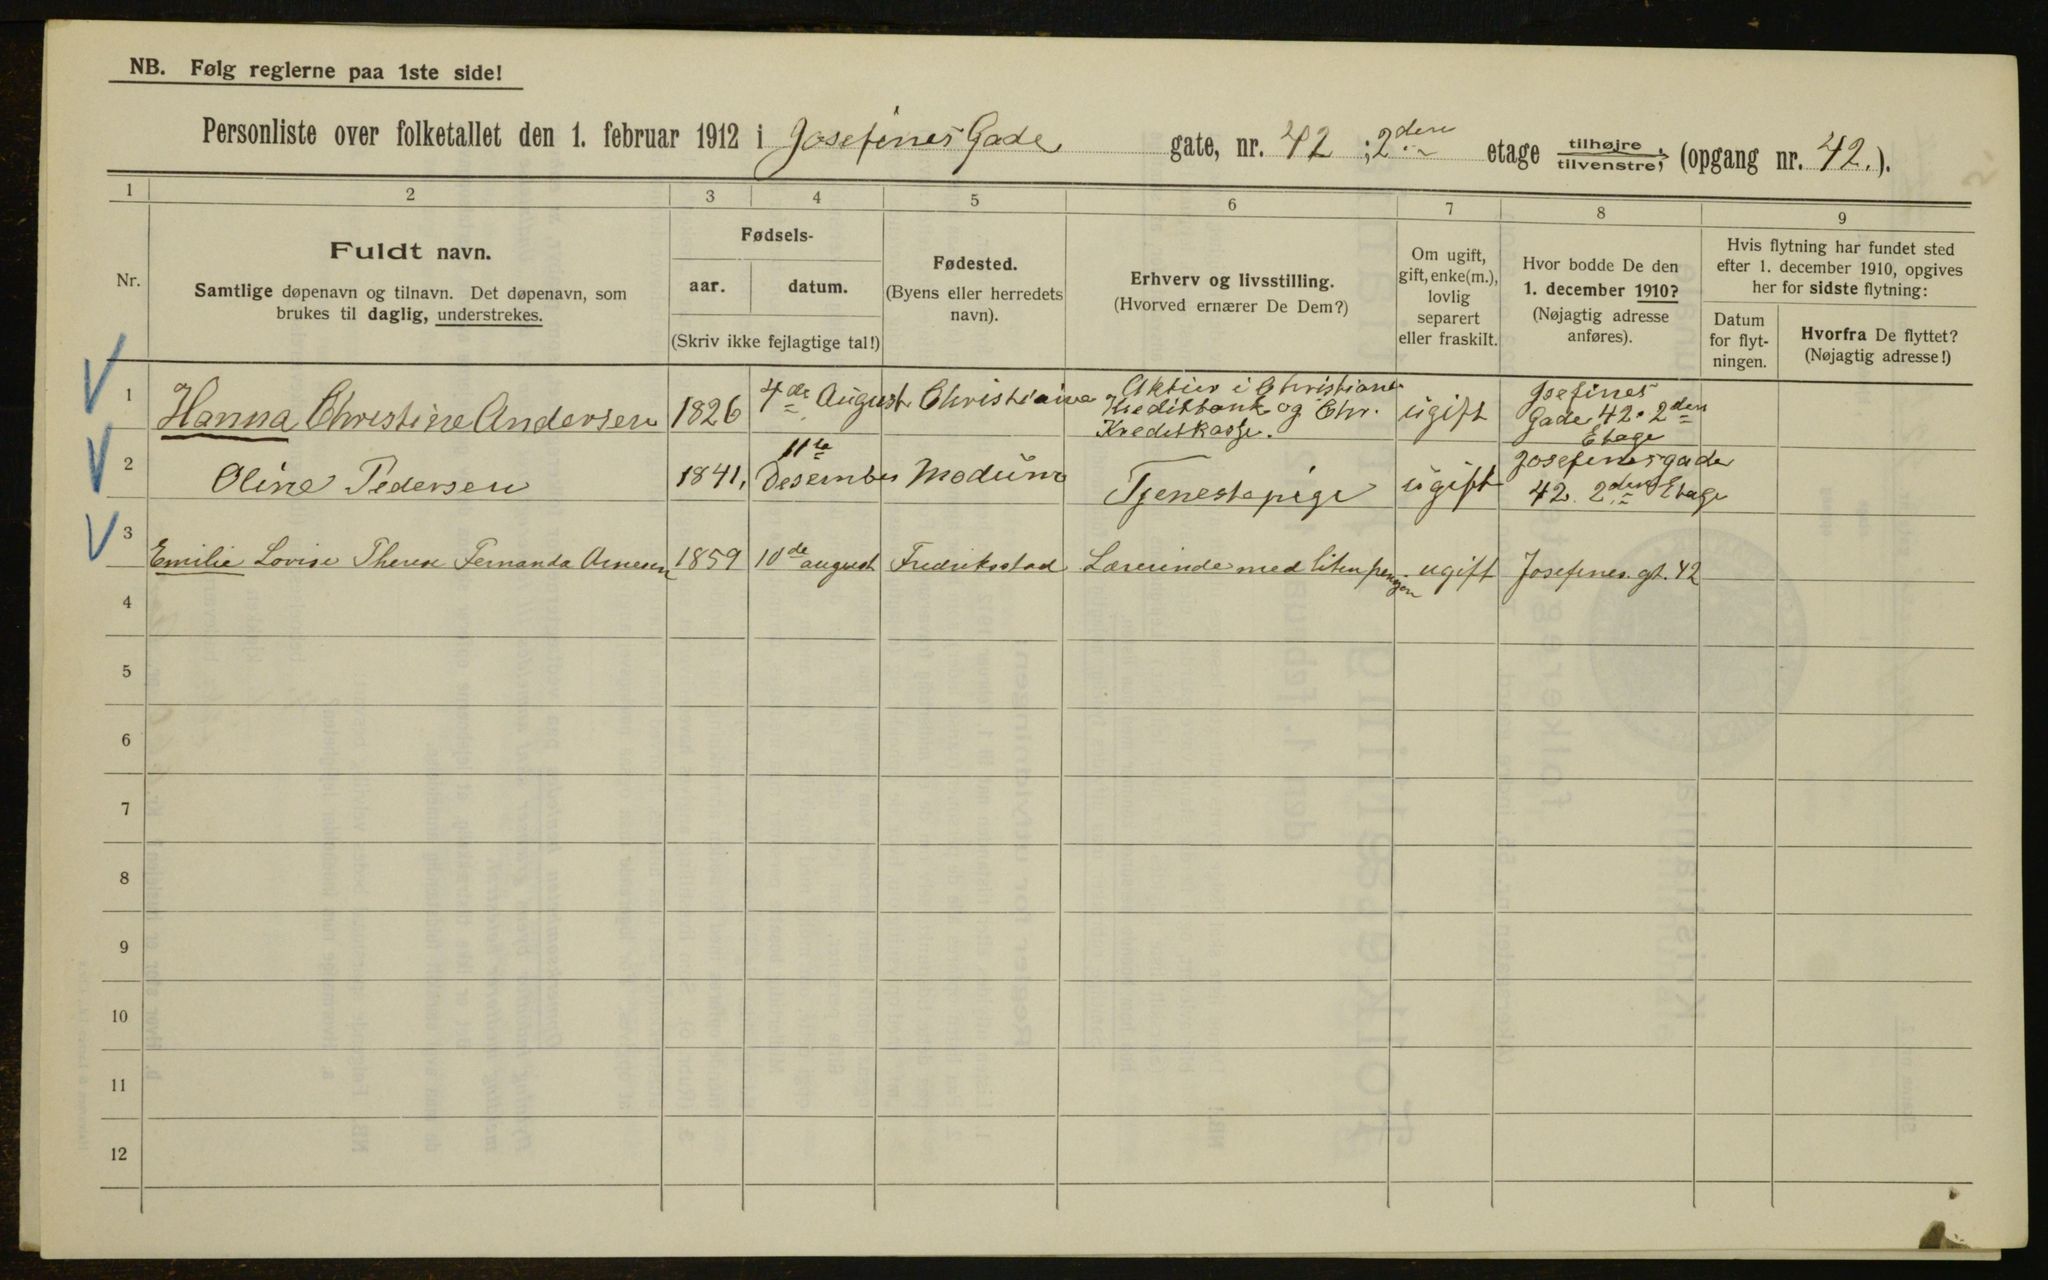 NB. Følg reglerne paa 1ste side!
Personliste over folketallet den 1. februar 1912 i Josefines Gade gate, nr. 42 ; 2den etage tilhøjre, tilvenstre, (opgang nr. 42.).
1 2 3 4 5 6 7 8 9
Nr.
Fuldt navn.
Samtlige døpenavn og tilnavn. Det døpenavn, som
brukes til daglig, understrekes.
Fødsels-
aar. datum.
(Skriv ikke fejlagtige tal!)
Fødested.
(Byens eller herredets
navn).
Erhverv og livsstilling.
(Hvorved ernærer De Dem?)
Om ugift,
gift, enke(m.),
lovlig
separert
eller fraskilt.
Hvor bodde De den
1. december 1910?
(Nøjagtig adresse
anføres).
Hvis flytning har fundet sted
efter 1. december 1910, opgives
her for sidste flytning:
Datum
for flyt-
ningen.
Hvorfra De flyttet?
(Nøjagtig adresse!)
1 Hanna Christine Andersen 1826 4de August Christiania
Aktier i Christiania
Kreditbank og Chr.
Kreditkasse.
ugift
Josefines
Gade 42. 2den
Etage
2 Oline Pedersen 1841,
11te
Desember
Modum Tjenestepige ugift
Josefinesgade
42. 2den Etage
3 Emilie Lovise Therese Fernanda Arnesen 1859 10de august Fredriksstad Lærerinde med liten pension ugift Josefines. gt. 42
4
5
6
7
8
9
10
11
12